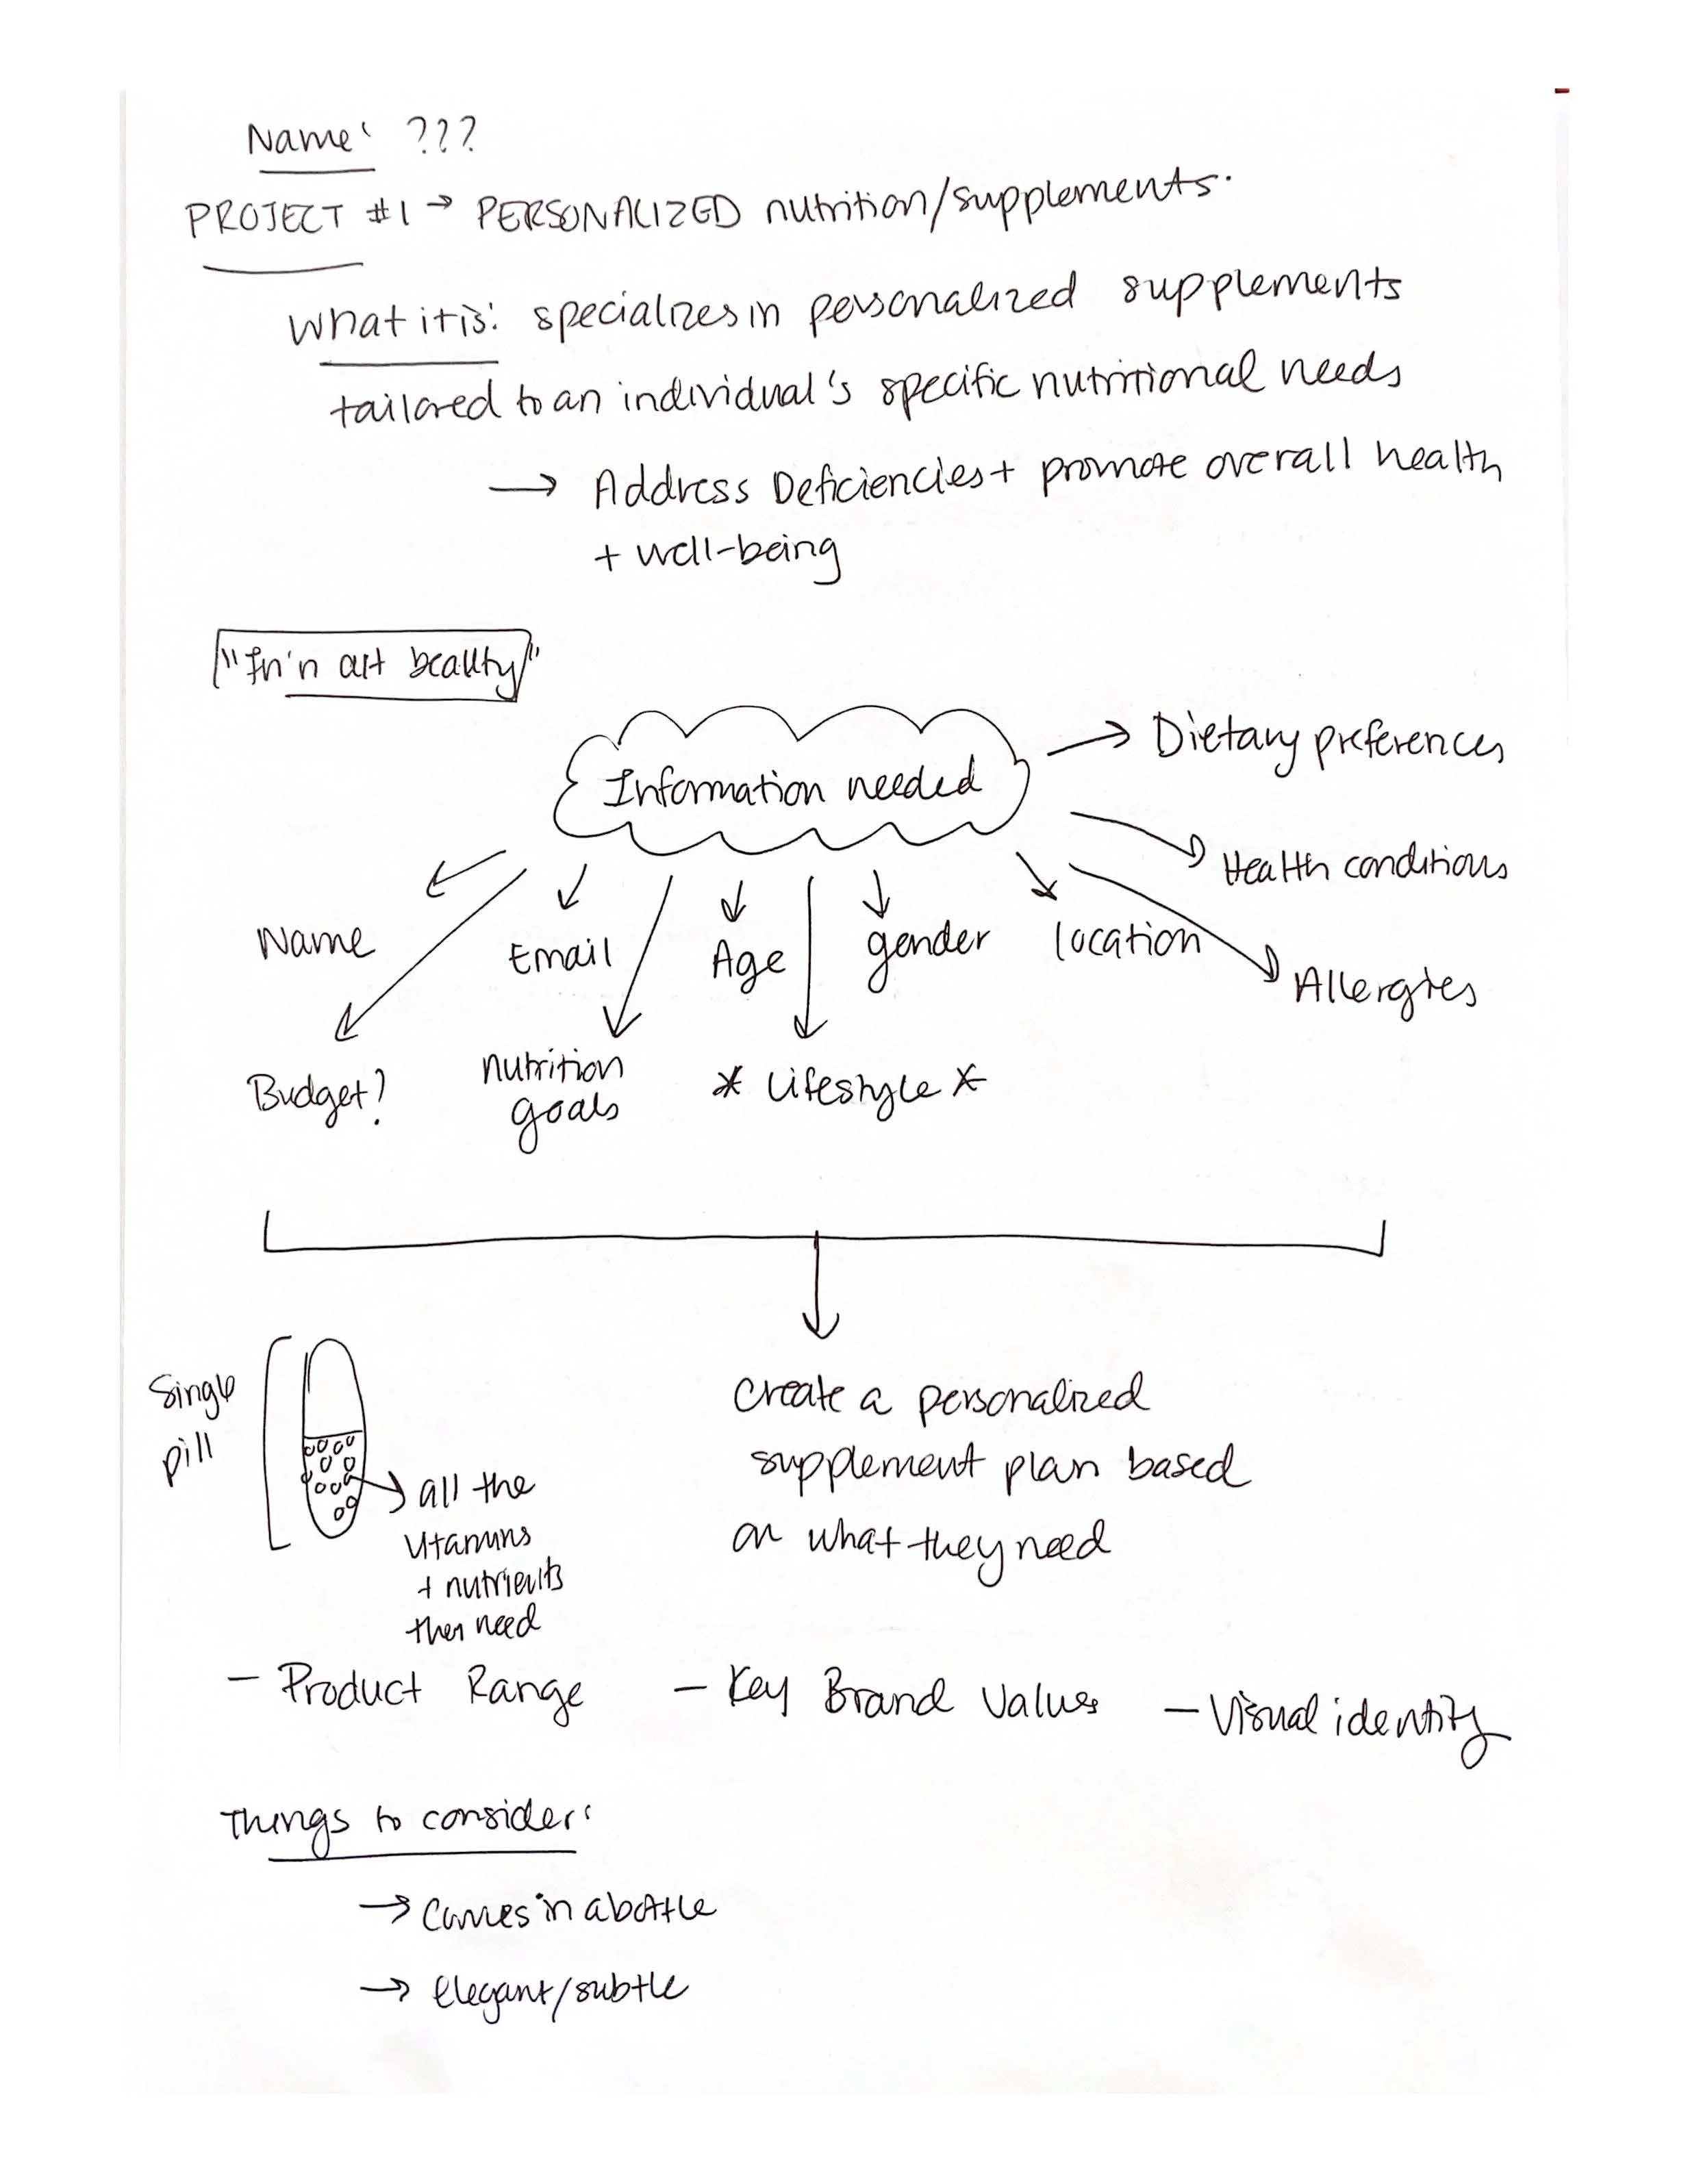 Name: ???
PROJECT #1 → PERSONALIZED nutrition/supplements.
What it is: specializes in personalized supplements
tailored to an individual's specific nutritional needs
→ Address Deficiencies + promote overall health
+ well-being
"In'n out beauty"
Information needed
→ Dietary preferences
Health conditions
Name
Email
Age
gender
location
Allergies
Budget?
nutrition
goals
* Lifestyle *
Single
pill
all the
vitamins
+ nutrients
they need
Create a personalized
supplement plan based
on what they need
- Product Range
- Key Brand Values
- Visual identity
Things to consider:
→ Comes in a bottle
→ Elegant/subtle